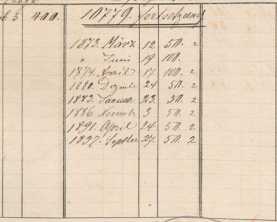 10779 Fortsetzung
400.
1873. März 12 50. 2
" Juni 19 100.
1874. April 17 100. 2
1880. Dezmb. 24 50. 2
1883. Januar 23. 50. 2
1886. Novmb. 3 50. 2
1891. April 24. 50. 2
1897. Septbr. 27. 50. 2